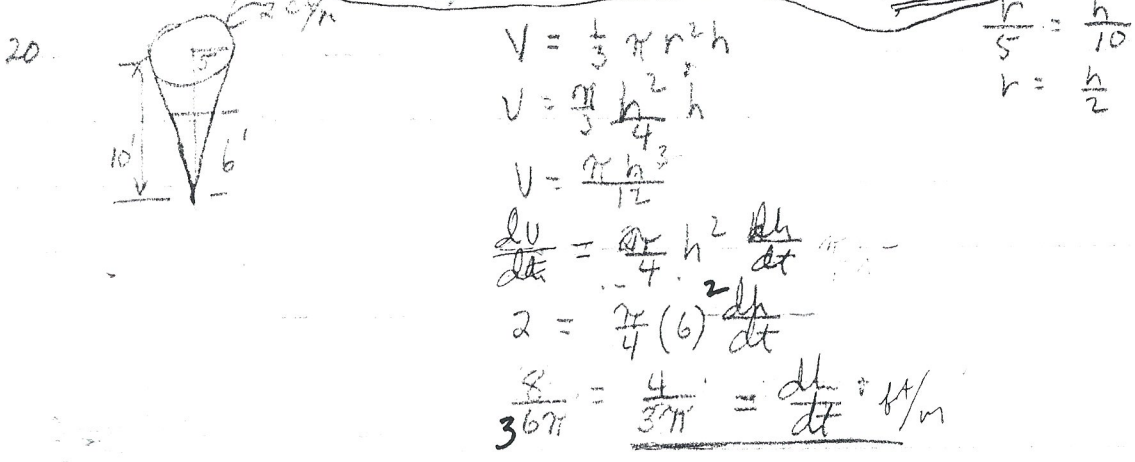 20
5
10'
6'
V = 1/3 π r² h
V = π/3 h²/4 h
V = π h³/12
dV/dt = π/4 h² dh/dt
2 = π/4 (6)² dh/dt
8/36π = 4/3π = dh/dt ft/m
r/5 = h/10
r = h/2